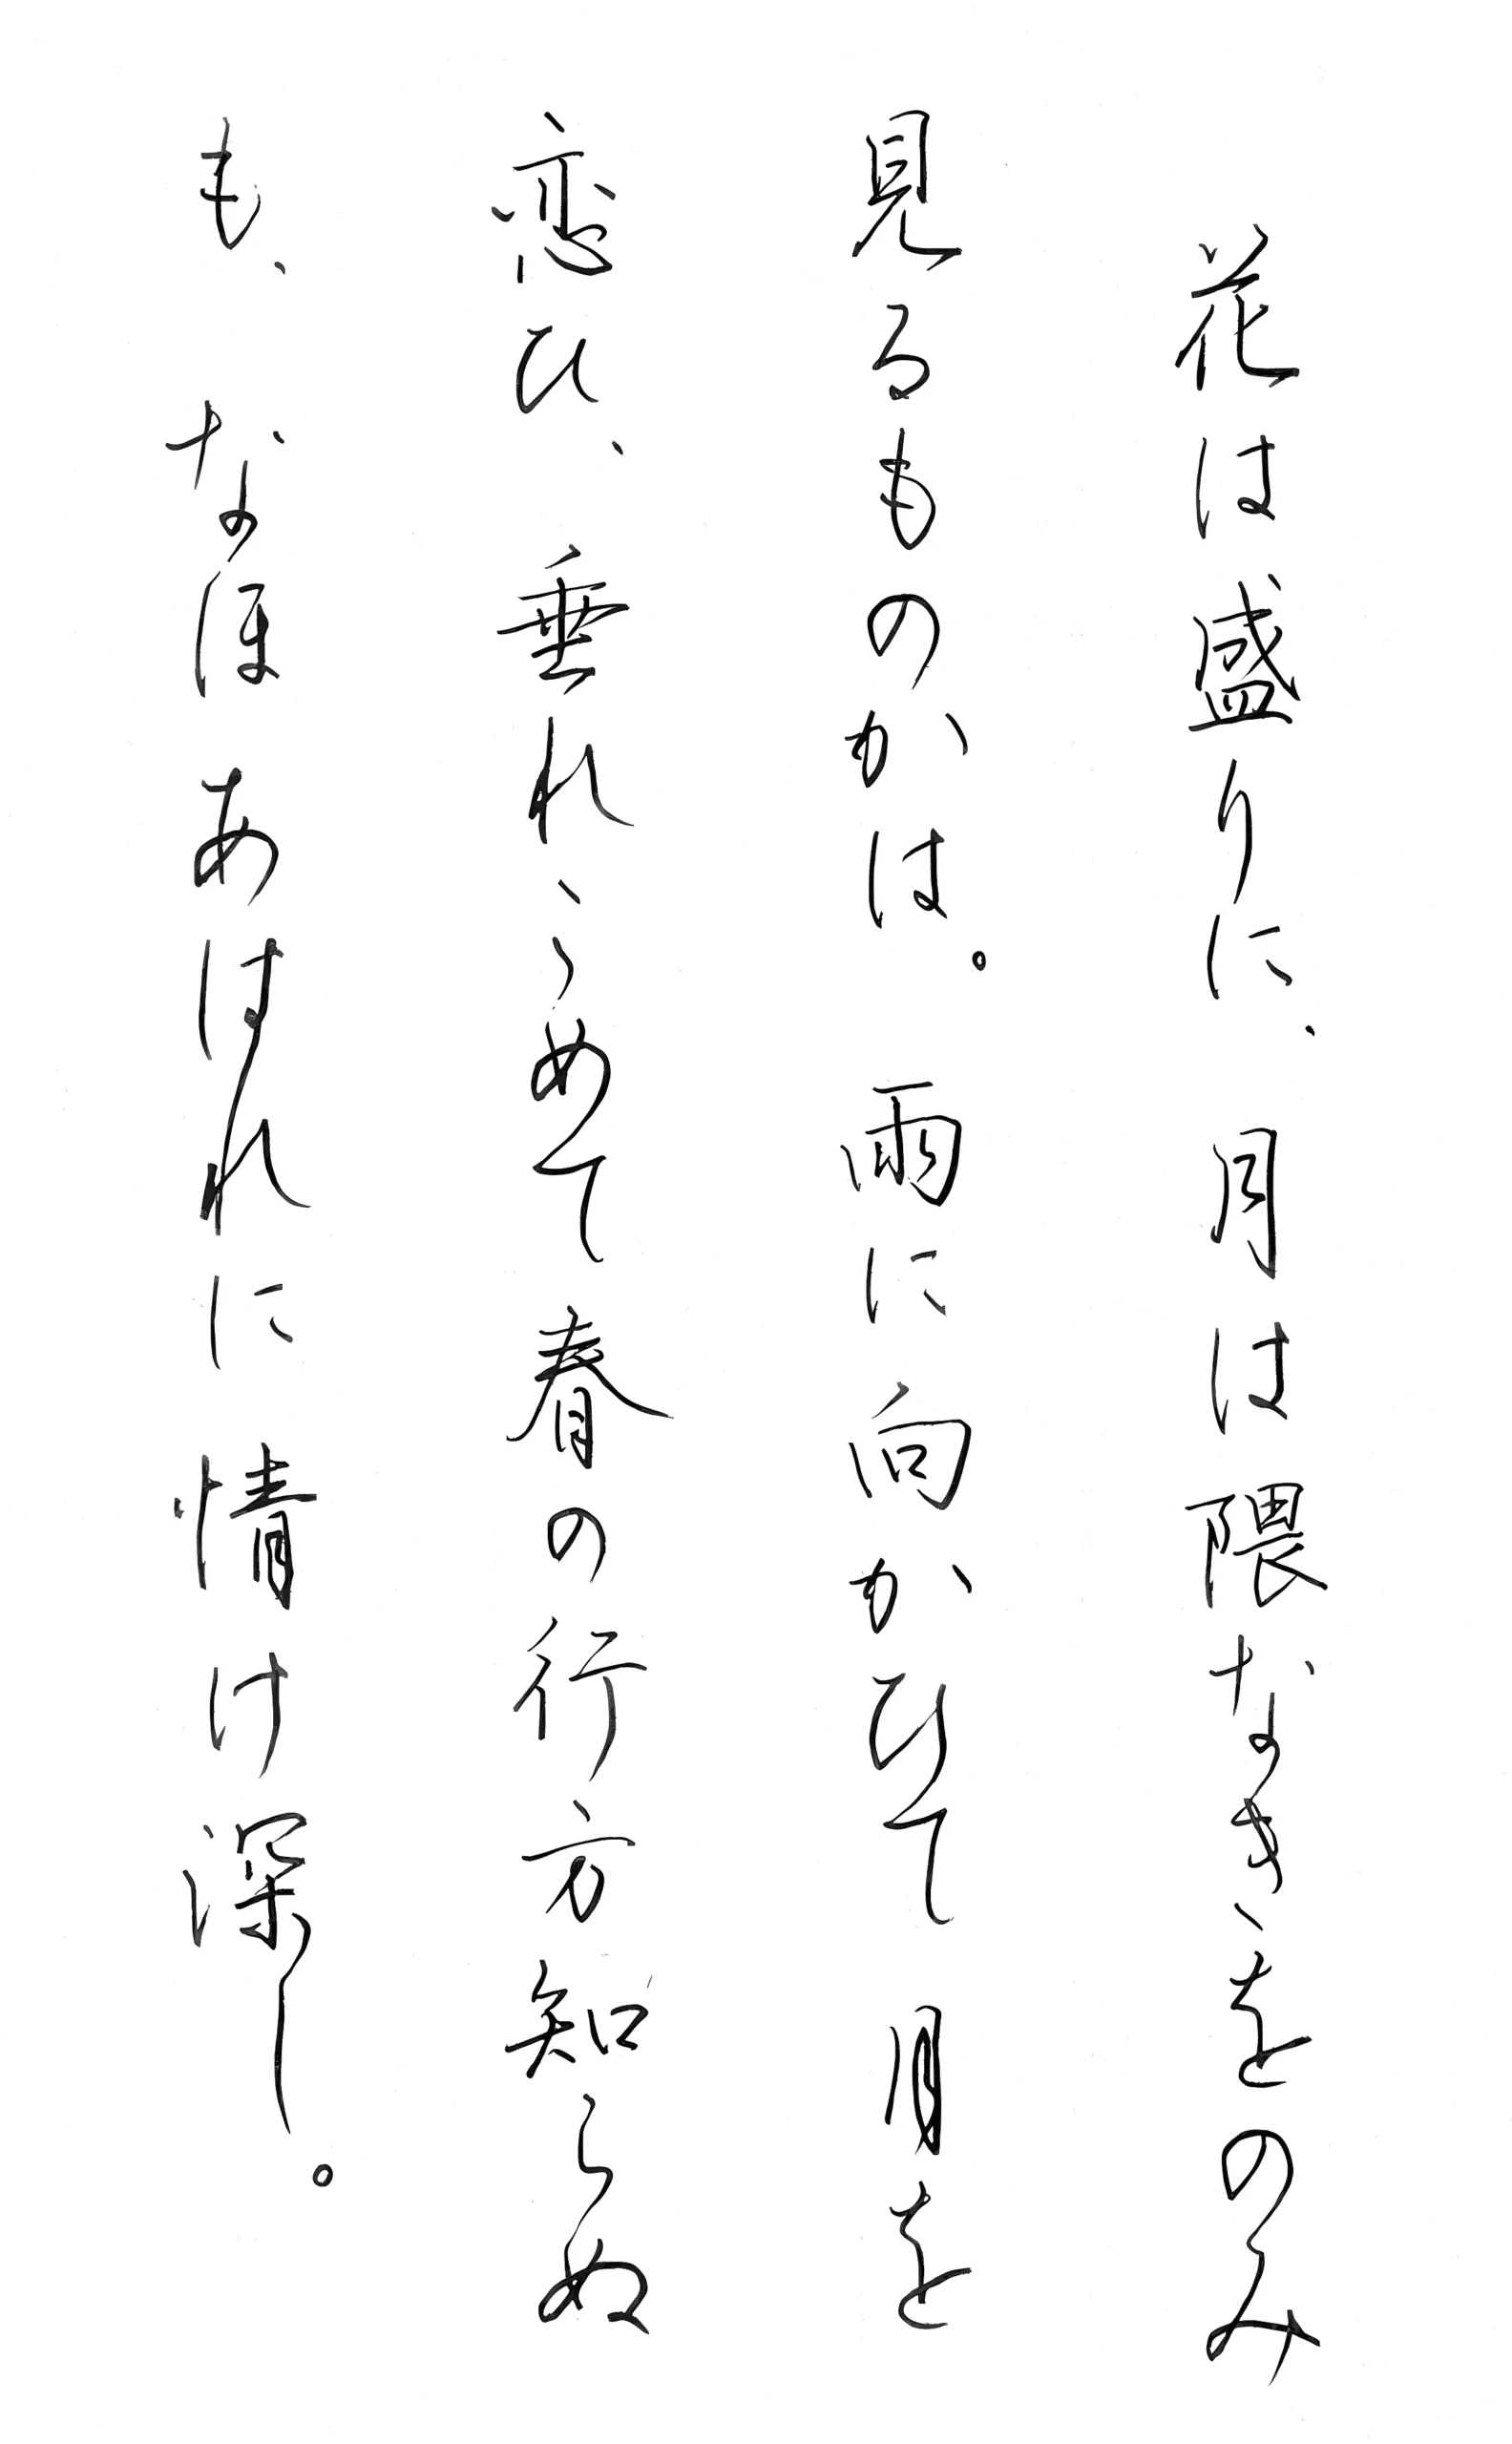 花は盛りに、月は隈なきをのみ
見るものかは。雨に向かひて月を
恋ひ、垂れこめて春の行方知らぬ
も、なほあはれに情け深し。